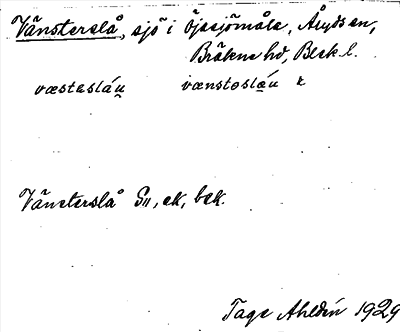 Vänsterslå, sjö i Öjasjömåla, Åryds sn,
Bräkne hd, Blek. l.
væstəsláu̯ vænstəsláu̯ ε
Vänsterslå Sjö, ek, bek.
Tage Ahldén 1929